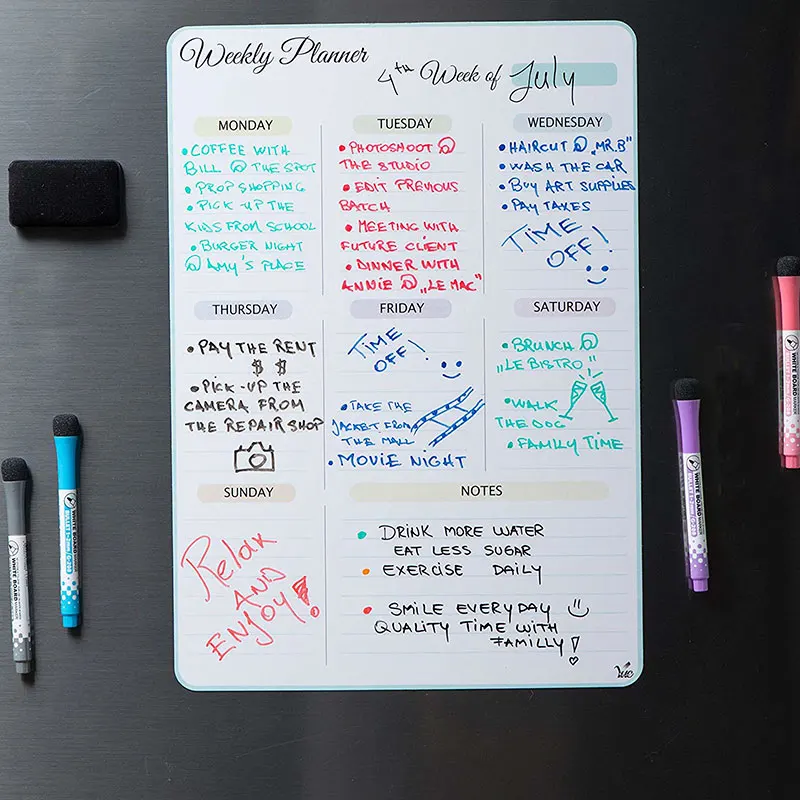 Weekly Planner
4th Week of July
MONDAY
• COFFEE WITH
BILL @ THE SPOT
• PROP SHOPPING
• PICK-UP THE
KIDS FROM SCHOOL
• BURGER NIGHT
@ AMY'S PLACE
TUESDAY
• PHOTOSHOOT @
THE STUDIO
• EDIT PREVIOUS
BATCH
• MEETING WITH
FUTURE CLIENT
• DINNER WITH
ANNIE @ „LE MAC"
WEDNESDAY
• HAIRCUT @ „MR.B"
• WASH THE CAR
• BUY ART SUPPLIES
• PAY TAXES
TIME
OFF!
THURSDAY
• PAY THE RENT
$ $
• PICK-UP THE
CAMERA FROM
THE REPAIR SHOP
FRIDAY
TIME
OFF!
• TAKE THE
JACKET FROM
THE MALL
• MOVIE NIGHT
SATURDAY
• BRUNCH @
„LE BISTRO"
• WALK
THE DOG
• FAMILY TIME
SUNDAY
Relax
AND
ENJOY!
NOTES
• DRINK MORE WATER
EAT LESS SUGAR
• EXERCISE DAILY
• SMILE EVERYDAY
QUALITY TIME WITH
FAMILLY!
WHITE BOARD
WHITE BOARD
WHITE BOARD
WHITE BOARD